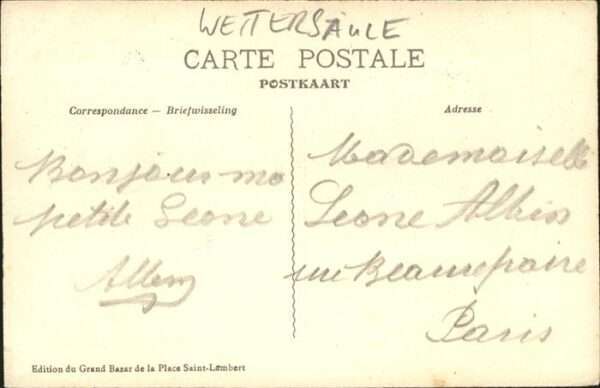 WETTERSÄULE
CARTE POSTALE
POSTKAART
Correspondance — Briefwisseling
Adresse
Bonjour ma
petite Leone
Mademoiselle
Leone Albin
rue Beaurepaire
Paris
Edition du Grand Bazar de la Place Saint-Lambert